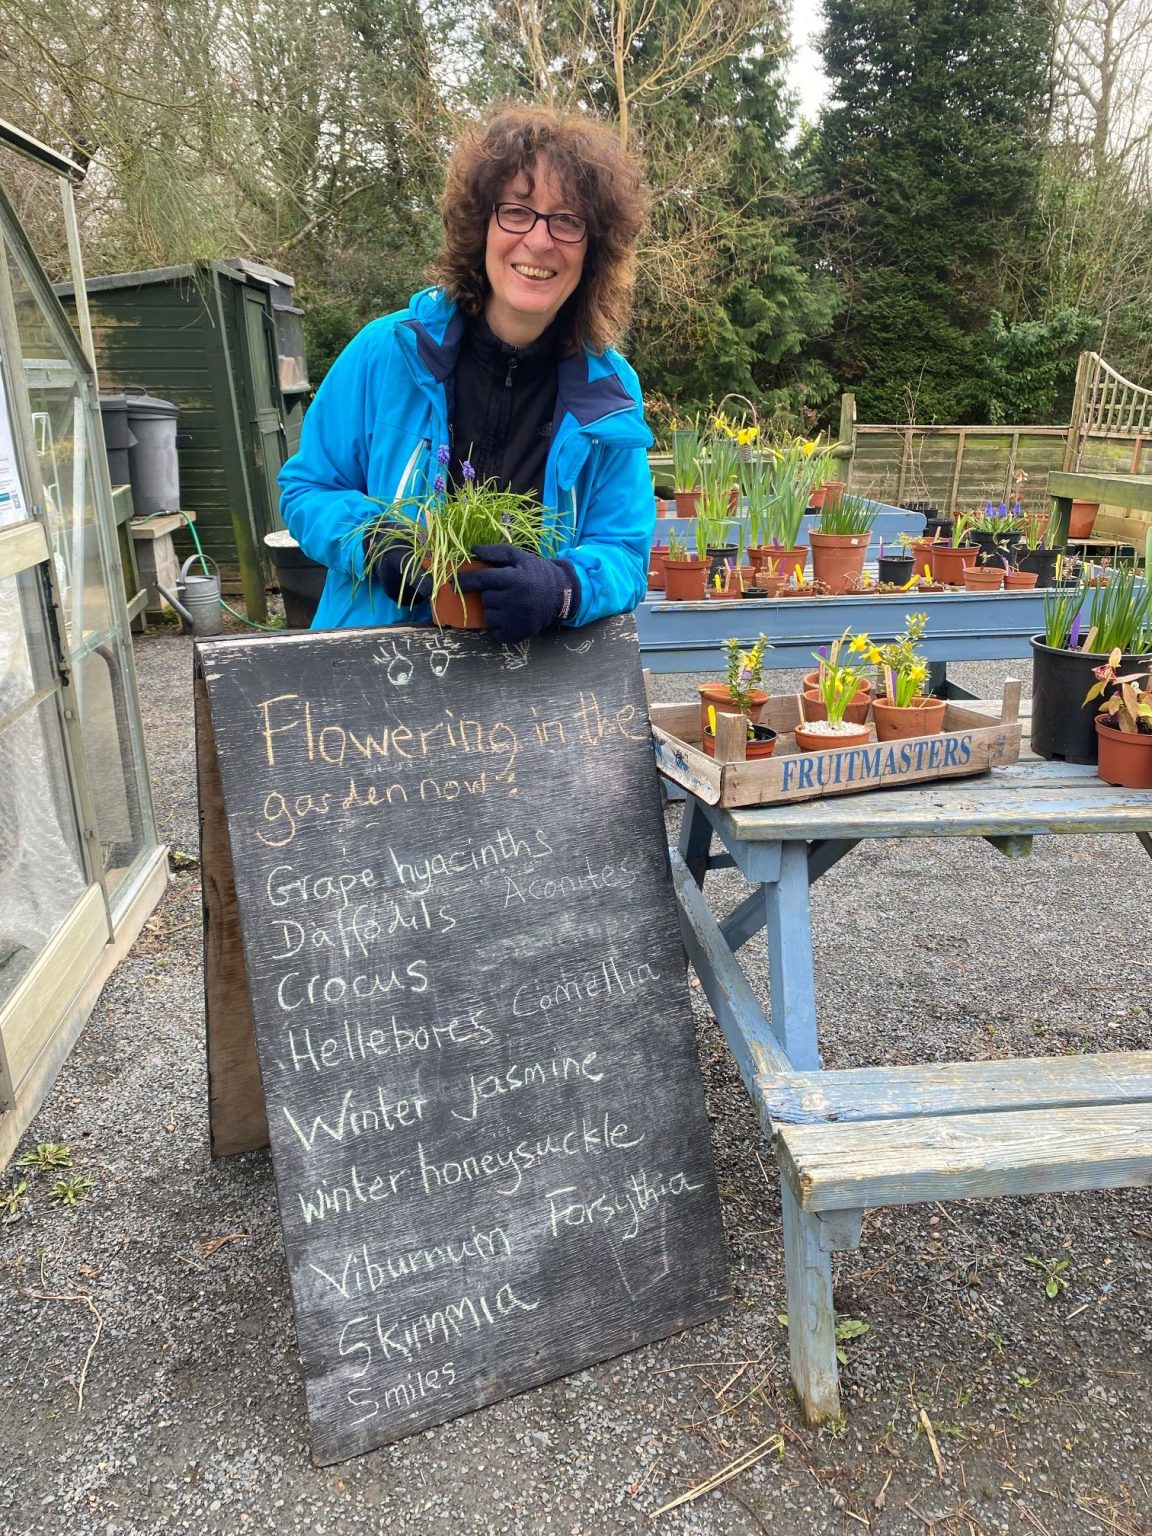 Flowering in the
garden now:
Grape hyacinths
Daffodils Aconites
Crocus
Hellebores Camellia
Winter Jasmine
Winter honeysuckle
Viburnum Forsythia
Skimmia
Smiles
FRUITMASTERS